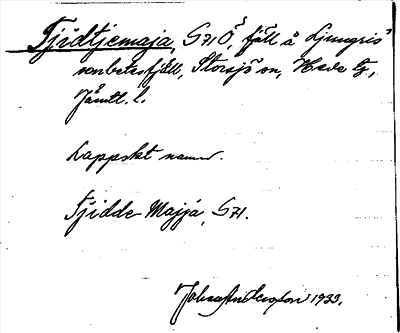 Tjidtjemaja, G71Ö, fjäll å Ljungris
renbetesfjäll, Storsjö sn, Hede tg,
Jämtl. l.
Lappskt namn.
Tjidde Majja, G71.
1933.